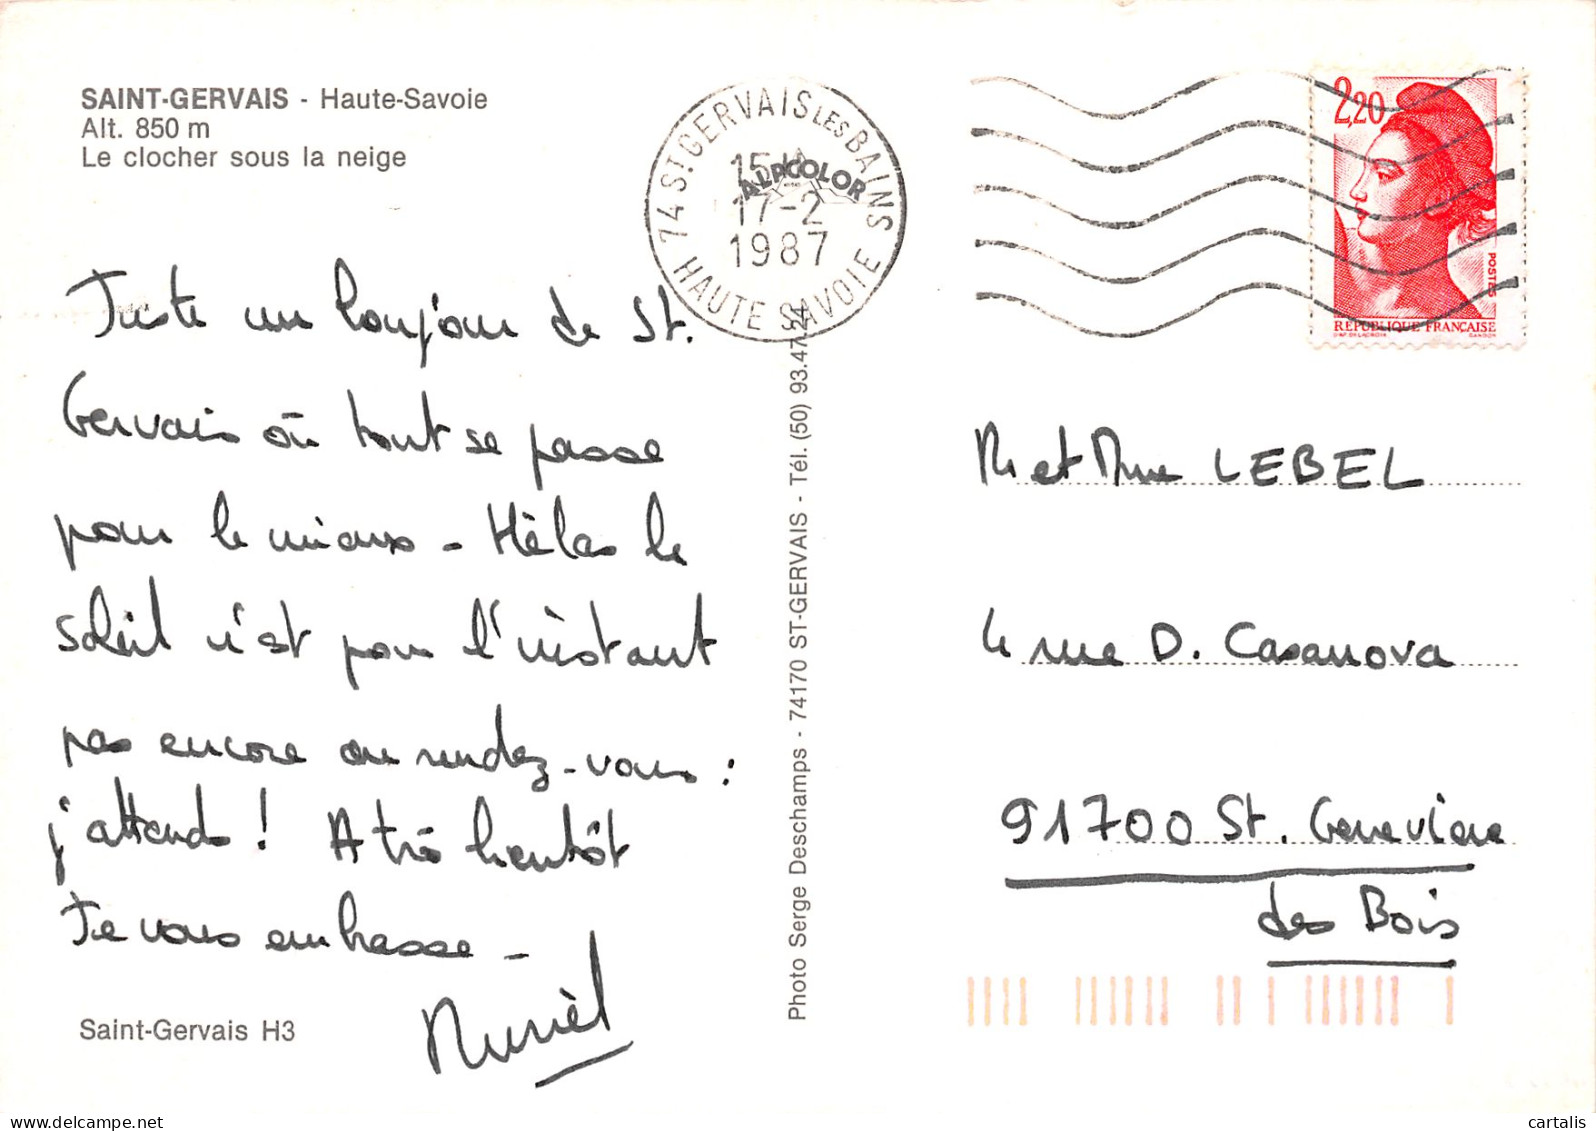 SAINT-GERVAIS - Haute-Savoie
Alt. 850 m
Le clocher sous la neige
74 ST GERVAIS LES BAINS
15 H
17-2
1987
HAUTE SAVOIE
ALPCOLOR
2,20
POSTES
REPUBLIQUE FRANÇAISE
GANDON
Juste un bonjour de St.
Gervais où tout se passe
pour le mieux - Hèlas le
soleil n'est pour l'instant
pas encore au rendez-vous :
j'attends ! A très bientôt
Je vous embrasse -
Murièl
Saint-Gervais H3
Photo Serge Deschamps - 74170 ST-GERVAIS - Tél. (50) 93.47.24
M et Mme LEBEL
4 rue D. Casanova
91700 St. Geneviève
des Bois
cartalis
delcampe.net